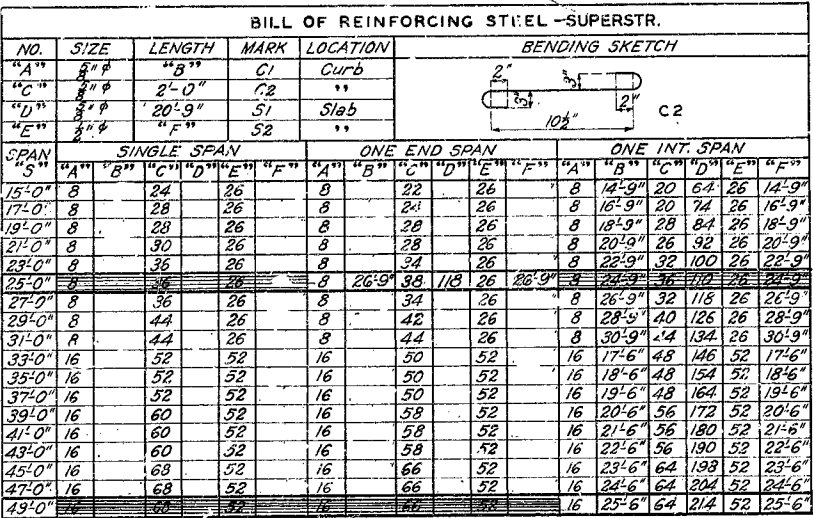 BILL OF REINFORCING STEEL -SUPERSTR.
NO. SIZE LENGTH MARK LOCATION BENDING SKETCH
"A" 5/8" φ "B" C1 Curb
"C" 5/8" φ 2'-0" C2 "
"D" 5/8" φ 20'-9" S1 Slab
"E" 1/2" φ "F" S2 "
2" 3" 3" 2" 10½" C2
SPAN "S" SINGLE SPAN ONE END SPAN ONE INT. SPAN
"A" "B" "C" "D" "E" "F" "A" "B" "C" "D" "E" "F" "A" "B" "C" "D" "E" "F"
15'-0" 8 24 26 8 22 26 8 14'-9" 20 64 26 14'-9"
17'-0" 8 28 26 8 24 26 8 16'-9" 20 74 26 16'-9"
19'-0" 8 28 26 8 28 26 8 18'-9" 28 84 26 18'-9"
21'-0" 8 30 26 8 28 26 8 20'-9" 26 92 26 20'-9"
23'-0" 8 36 26 8 34 26 8 22'-9" 32 100 26 22'-9"
25'-0" 8 36 26 8 26'-9" 38 118 26 26'-9" 8 24'-9" 36 110 26 24'-9"
27'-0" 8 36 26 8 34 26 8 26'-9" 32 118 26 26'-9"
29'-0" 8 44 26 8 42 26 8 28'-9" 40 126 26 28'-9"
31'-0" 8 44 26 8 44 26 8 30'-9" 44 134 26 30'-9"
33'-0" 16 52 52 16 50 52 16 17'-6" 48 146 52 17'-6"
35'-0" 16 52 52 16 50 52 16 18'-6" 48 154 52 18'-6"
37'-0" 16 52 52 16 50 52 16 19'-6" 48 164 52 19'-6"
39'-0" 16 60 52 16 58 52 16 20'-6" 56 172 52 20'-6"
41'-0" 16 60 52 16 58 52 16 21'-6" 56 180 52 21'-6"
43'-0" 16 60 52 16 58 52 16 22'-6" 56 190 52 22'-6"
45'-0" 16 68 52 16 66 52 16 23'-6" 64 198 52 23'-6"
47'-0" 16 68 52 16 66 52 16 24'-6" 64 204 52 24'-6"
49'-0" 16 68 52 16 66 52 16 25'-6" 64 214 52 25'-6"